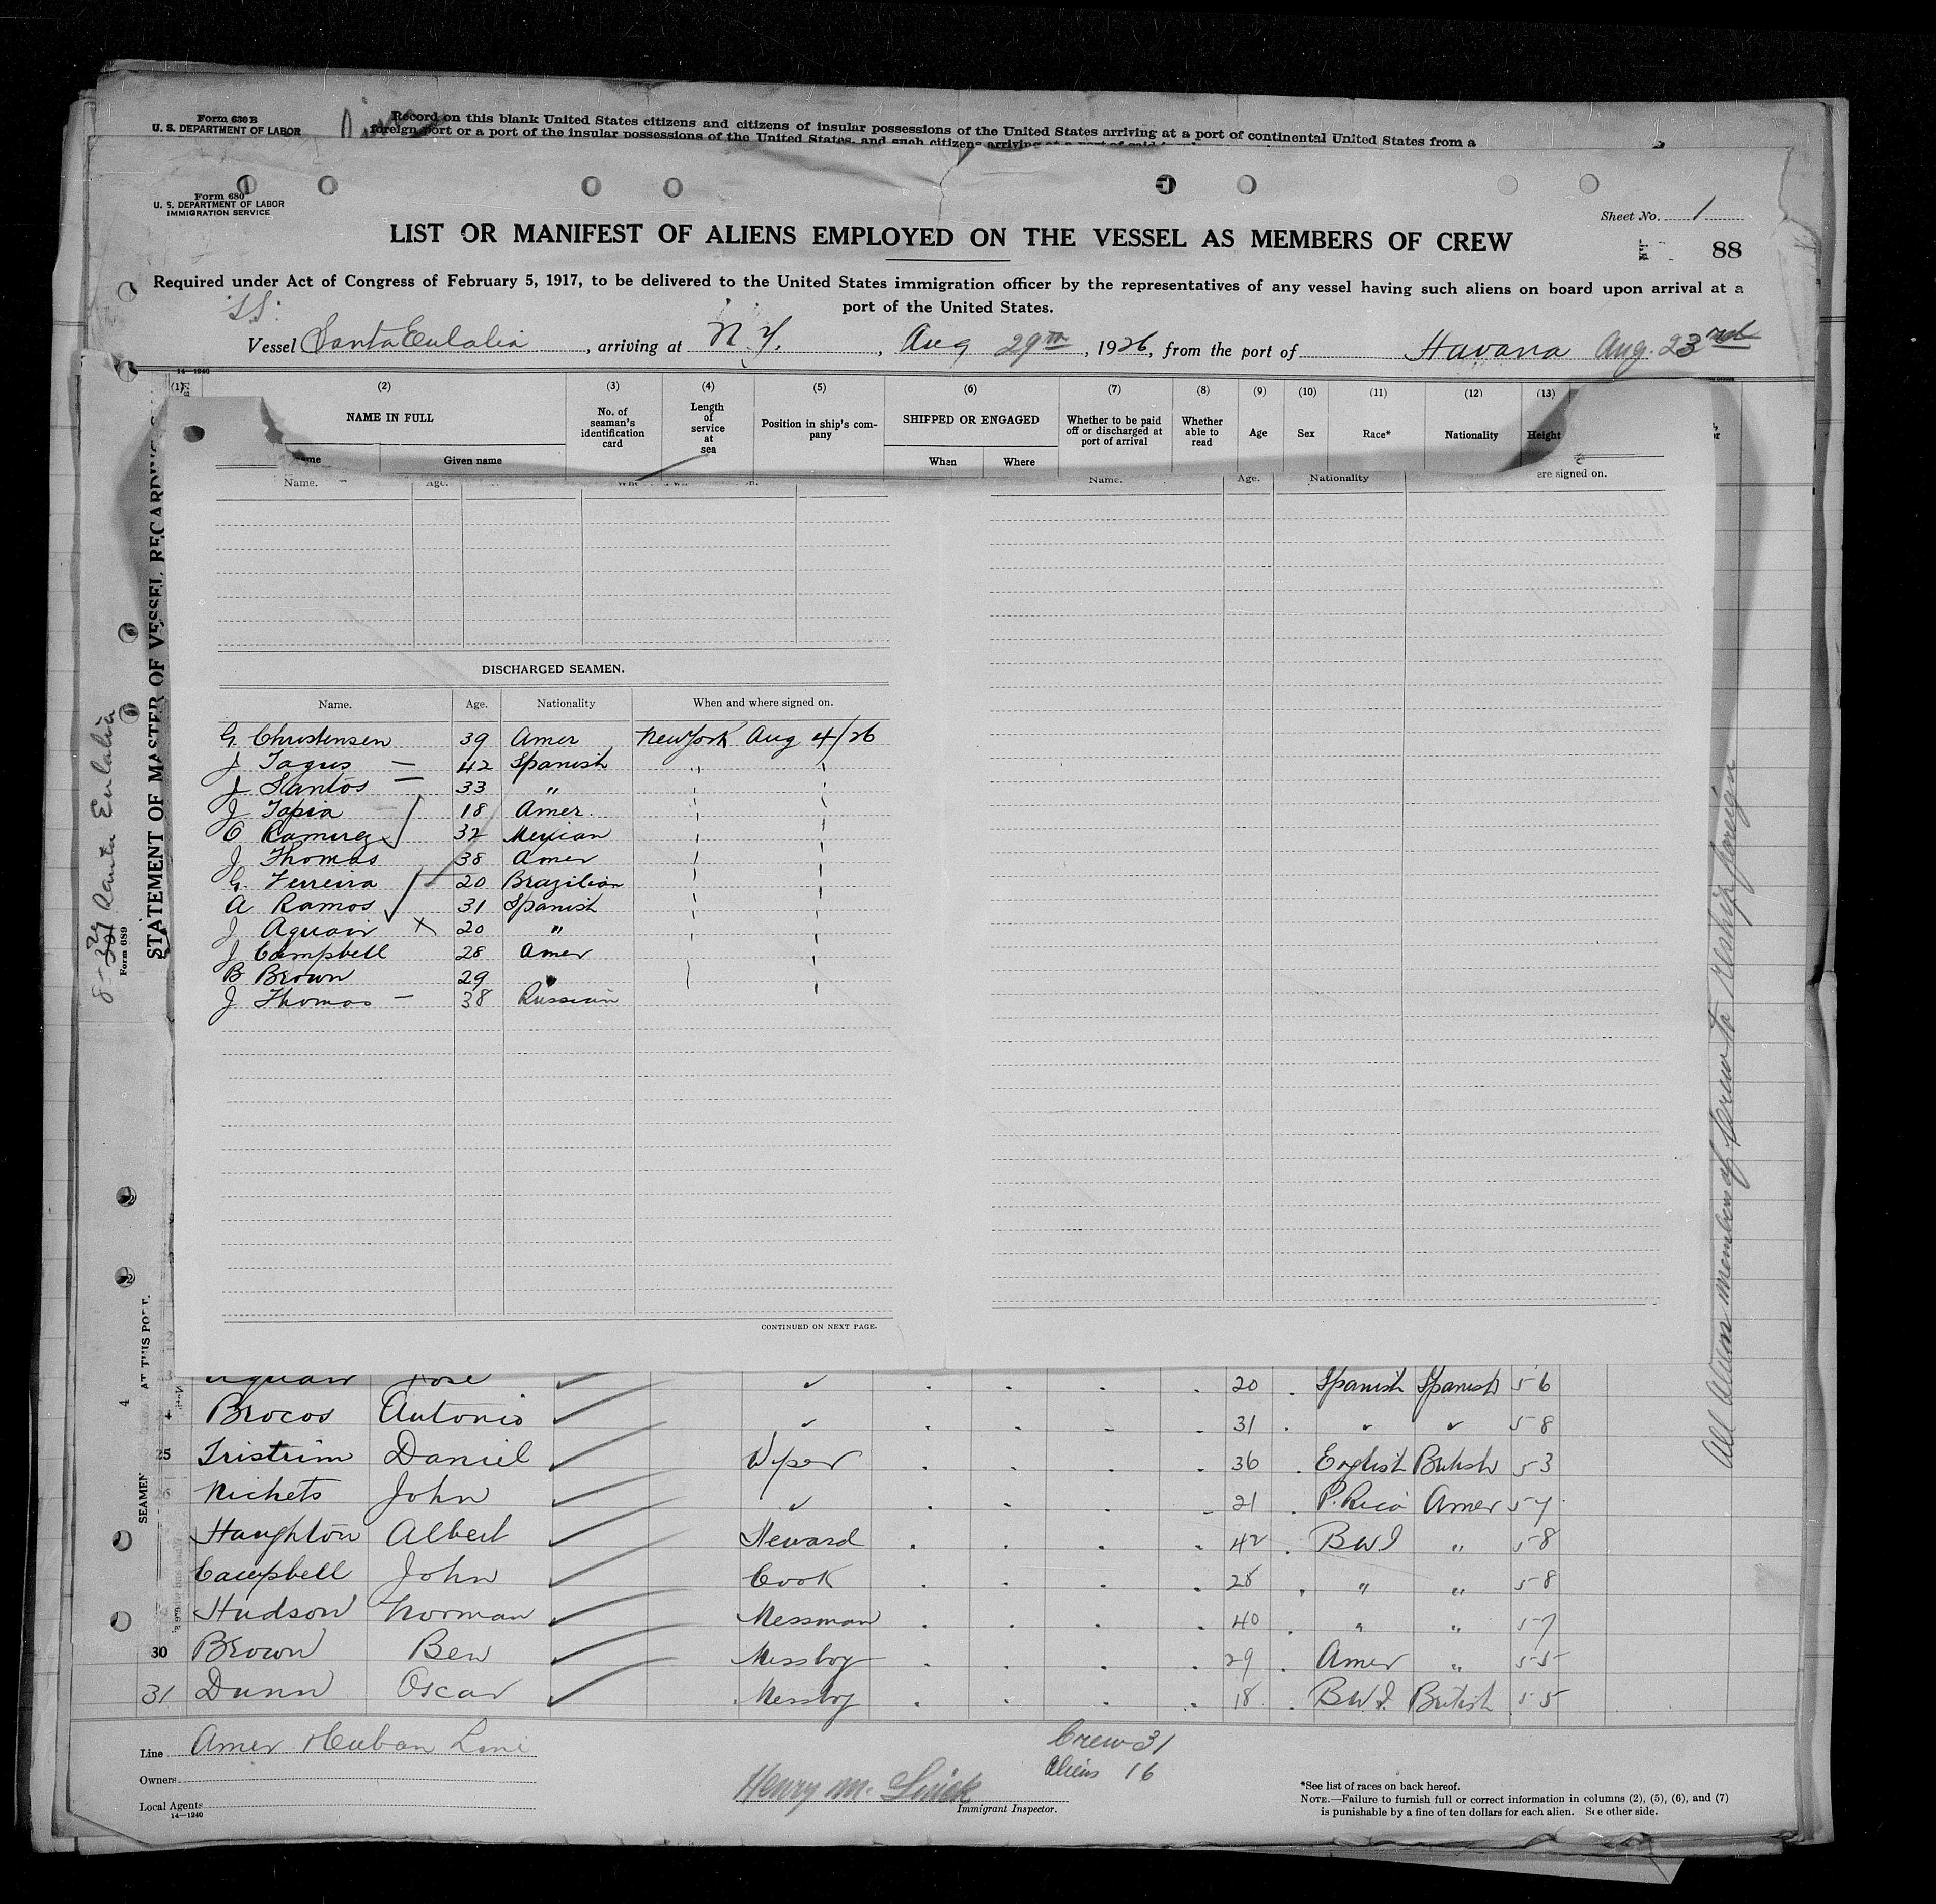 Form 630 B
U. S. DEPARTMENT OF LABOR
Record on this blank United States citizens and citizens of insular possessions of the United States arriving at a port of continental United States from a
foreign port or a port of the insular possessions of the United States, and such citizens arriving
Form 680
U. S. DEPARTMENT OF LABOR
IMMIGRATION SERVICE
Sheet No. 1
LIST OR MANIFEST OF ALIENS EMPLOYED ON THE VESSEL AS MEMBERS OF CREW
88
Required under Act of Congress of February 5, 1917, to be delivered to the United States immigration officer by the representatives of any vessel having such aliens on board upon arrival at a
port of the United States.
SS.
Vessel Santa Eulalia, arriving at N.Y., Aug 29th, 1926, from the port of Havana Aug. 23rd
14-1240
(1) (2) (3) (4) (5) (6) (7) (8) (9) (10) (11) (12) (13)
NAME IN FULL No. of seaman's identification card Length of service at sea Position in ship's company SHIPPED OR ENGAGED Whether to be paid off or discharged at port of arrival Whether able to read Age Sex Race* Nationality Height
Given name When Where
Name. Age. Name. Age. Nationality ere signed on.
DISCHARGED SEAMEN.
Name. Age. Nationality When and where signed on.
G. Christensen 39 Amer New York Aug 4/26
J Tagus — 42 Spanish " "
J Santos — 33 "
J Tapia 18 Amer.
O Ramirez 32 Mexican
J Thomas 38 Amer
G. Ferreira 20 Brazilian
A Ramos 31 Spanish
J Aguair x 20 "
J Campbell 28 Amer
B Brown 29 "
J Thomas — 38 Russian
CONTINUED ON NEXT PAGE.
Aguair Jose ✓ ✓ 20 Spanish Spanish 5 6
4 Brocos Antonio ✓ ✓ 31 " " 5 8
25 Tristrim Daniel ✓ Wiper 36 English British 5 3
26 Nichets John ✓ ✓ 21 P. Rico Amer 5 7
Haughton Albert ✓ Steward 42 BWI " 5 8
Campbell John ✓ Cook 28 " " 5 8
Hudson Norman ✓ Messman 40 " " 5 7
30 Brown Ben ✓ Messboy 29 Amer " 5 5
31 Dunn Oscar ✓ Messboy 18 B.W.I. British 5 5
Line Amer & Cuban Line
Crew 31
Aliens 16
Owners
Henry M.
Immigrant Inspector.
Local Agents
14—1240
*See list of races on back hereof.
NOTE.—Failure to furnish full or correct information in columns (2), (5), (6), and (7)
is punishable by a fine of ten dollars for each alien. See other side.
8-29 Santa Eulalia
Form 689
STATEMENT OF MASTER OF VESSEL REGARDING
SEAMEN
AT THIS PORT.
4
All Alien members of Crew to Reship foreign